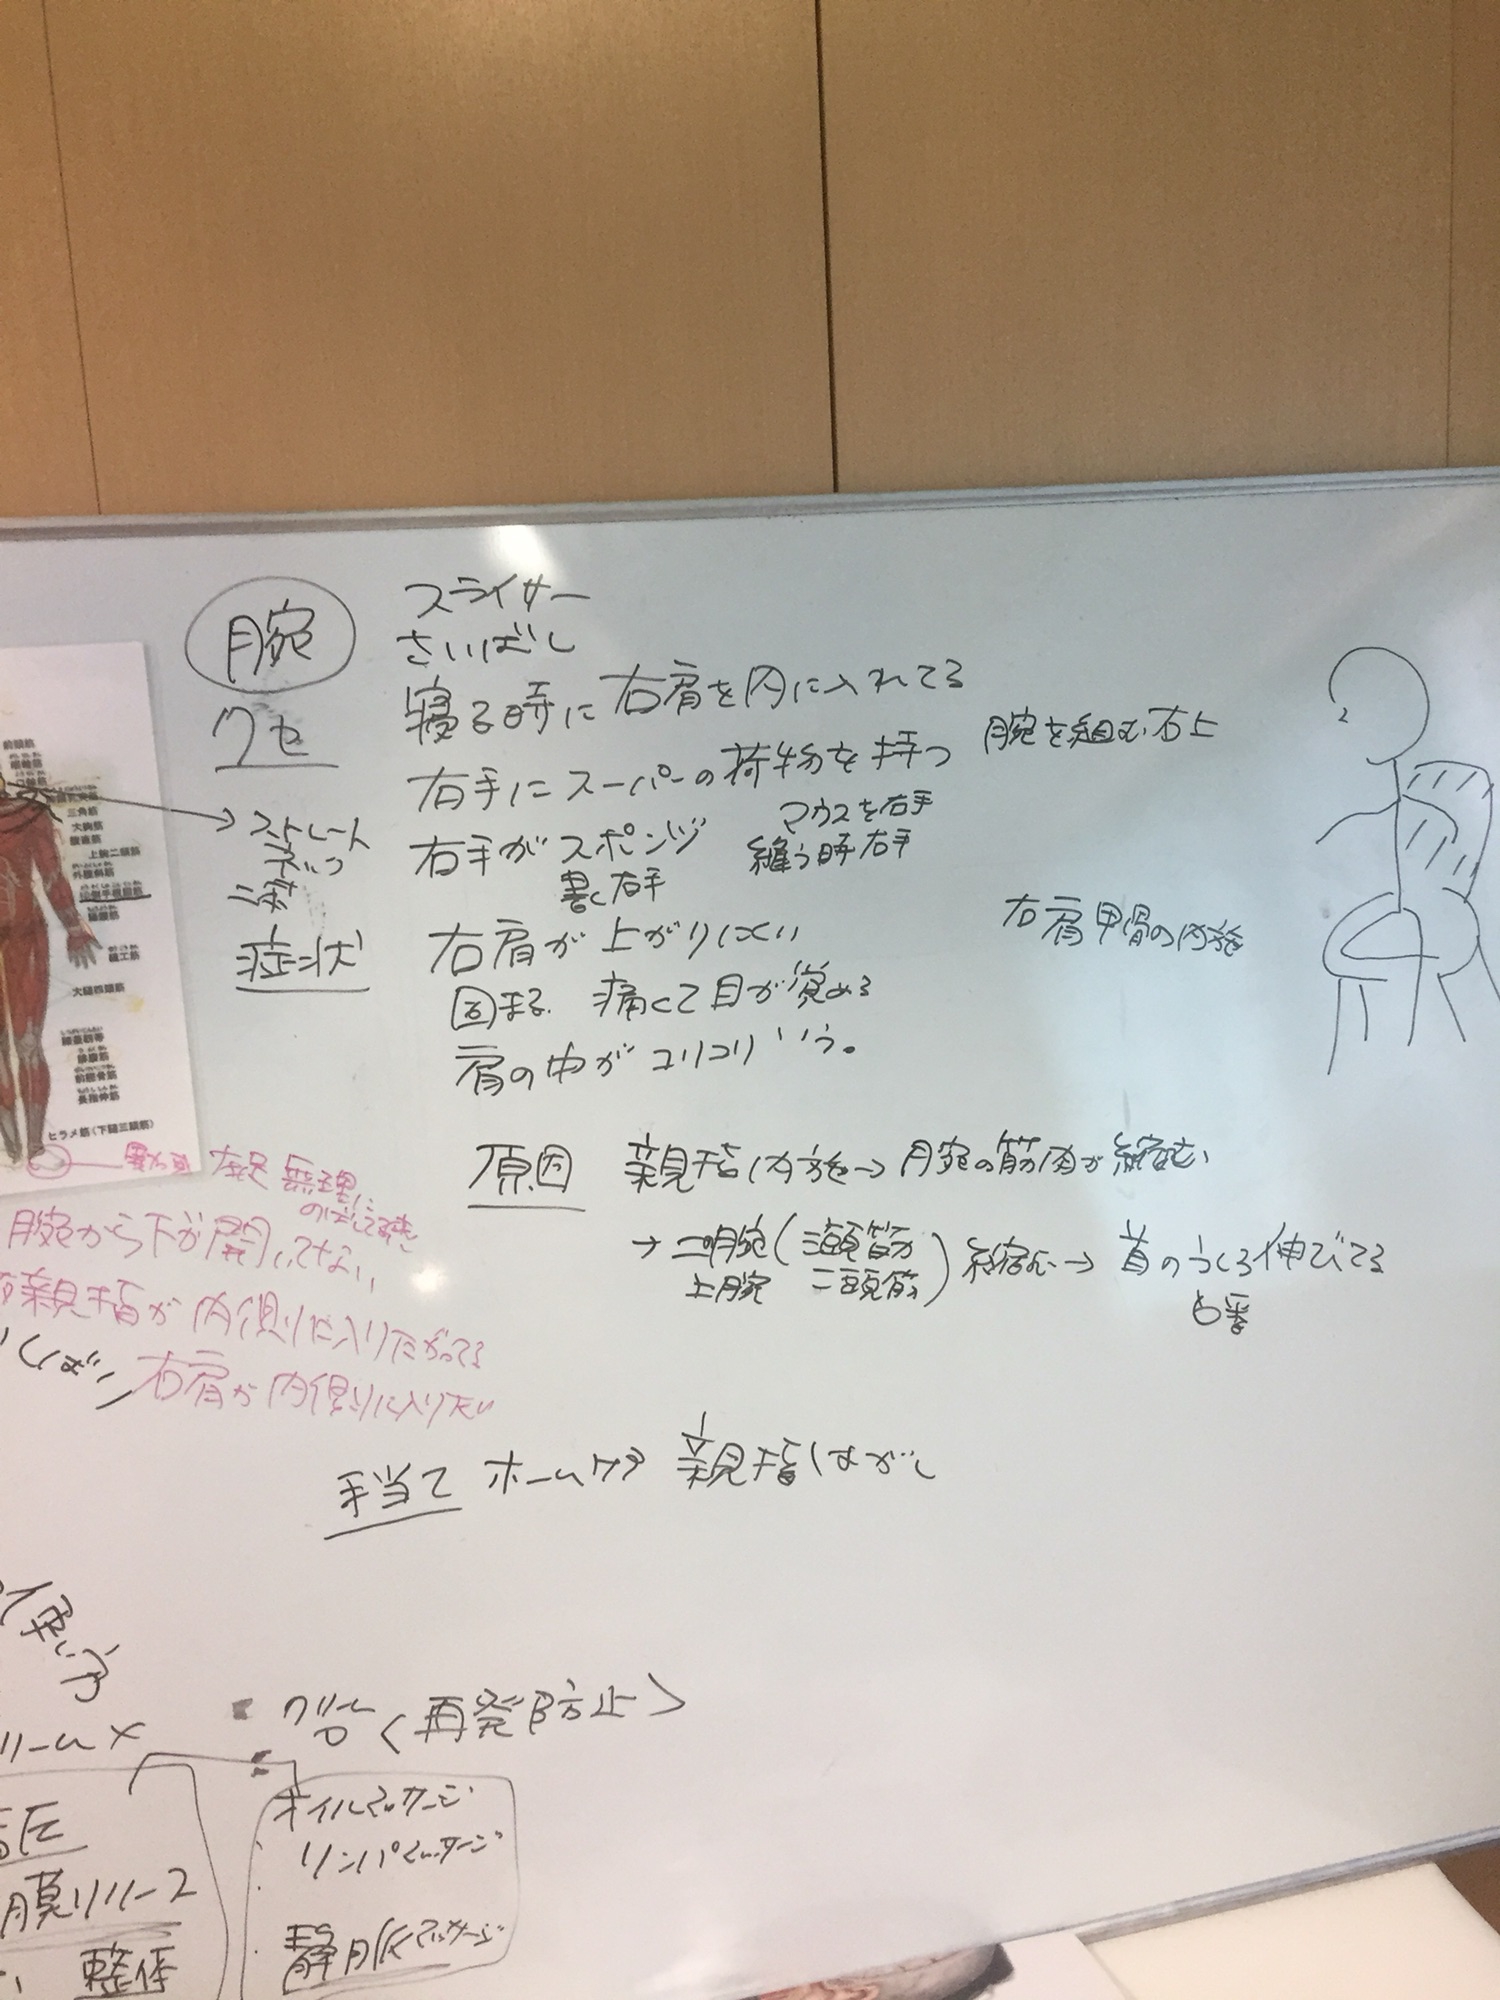 腕
スライサー
さいばし
クセ
寝る時に右肩を内に入れてる
右手にスーパーの荷物を持つ
腕を組む右上
マウスを右手
右手がスポンジ
縫う時右手
書く右手
ストレート
ネック
症状
右肩が上がりにくい
右肩甲骨の内旋
固まる 痛くて目が覚める
肩の中がコリコリいう。
前頭筋
眼輪筋
三角筋
大胸筋
腹直筋
上腕二頭筋
外腹斜筋
縫工筋
大腿四頭筋
腓腹筋
前脛骨筋
長指伸筋
ヒラメ筋(下腿三頭筋)
原因 親指内旋→腕の筋肉が縮む
無理に
のばして
→ 前腕(三頭筋
上腕 二頭筋) 縮む→首のうしろ伸びてる
6番
腕から下が開いてない
右親指が内側に入りたがってる
くいしばり 右肩が内側に入りたい
手当て ホームケア 親指はがし
〈再発防止〉
リームメ
オイルマッサージ
リンパマッサージ
膜リリース
静脈マッサージ
整体